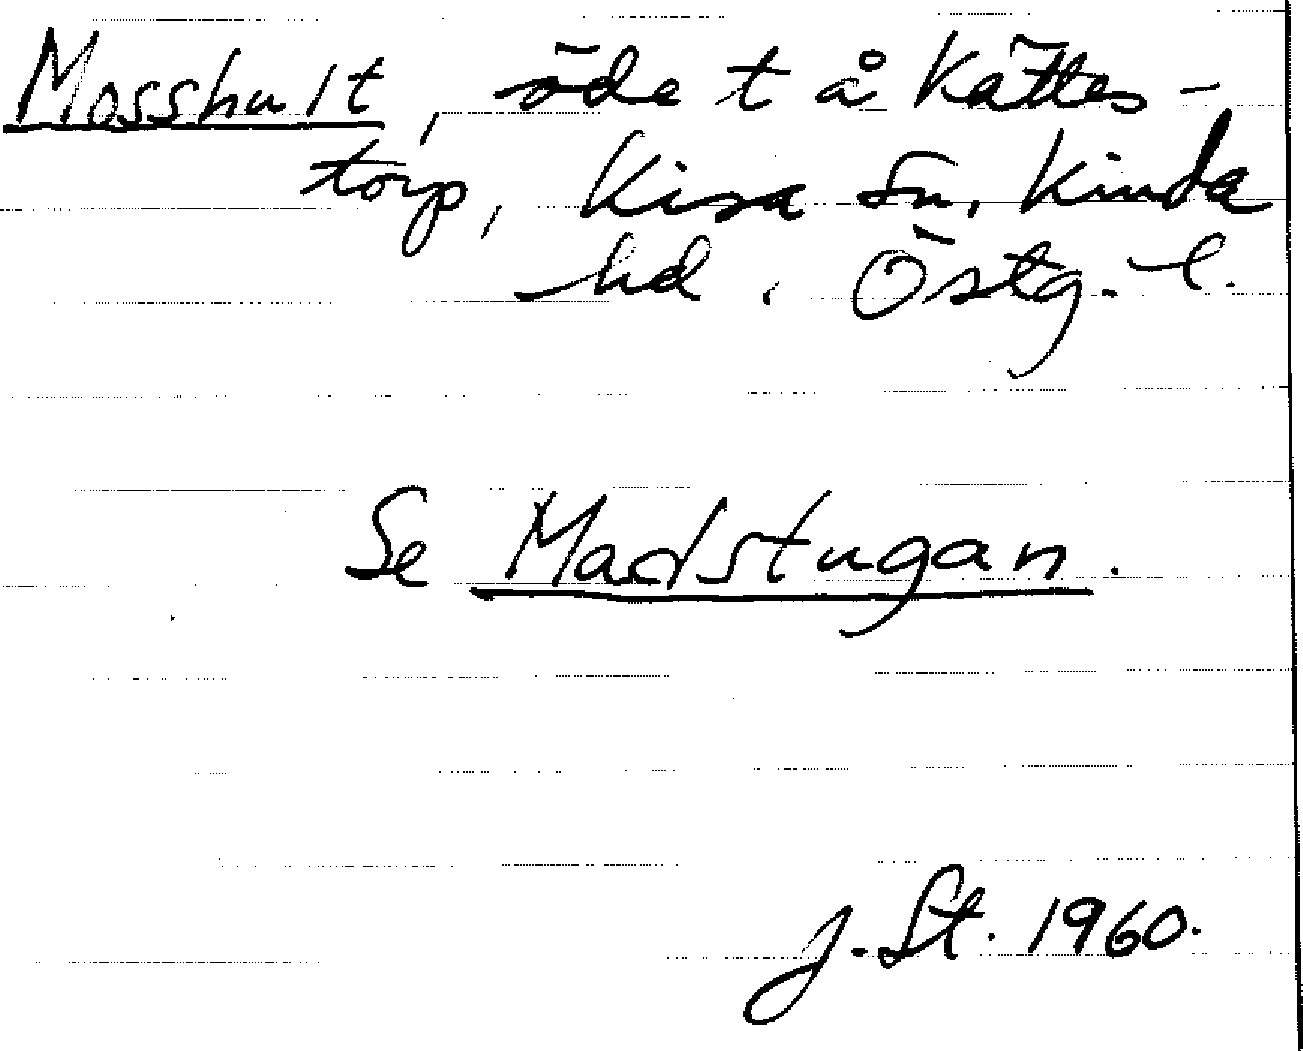 Mosshult, öde t å Kättes-
torp, Kisa sn, Kinda
hd, Östg. l.
Se Madstugan.
J. St. 1960.